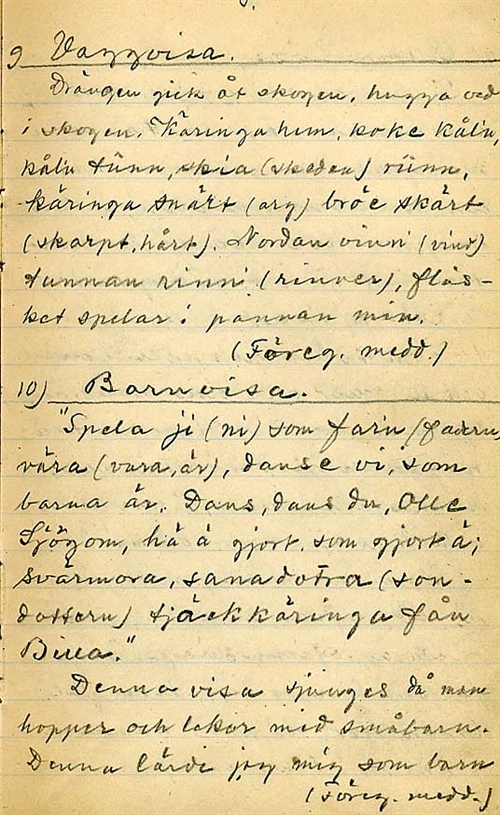 9 Vaggvisa.
Drängen gick åt skogen, hugga ved
i skogen. Käringa hem, koke kåln,
kåln tünn, skia (skeden) rünn,
käringa snärt (arg) bröe skärt
(skarpt, hårt). Nordan vinn (vind)
tunnan rinn (rinner), fläs-
ket spelar i pannan min.
(Föreg. medd.)
10) Barnvisa.
"Spela ji (ni) som farin (fadern)
våra (vara, är), danse vi, som
barna är. Dans, dans du, Olle
Sjögom, hä ä gjort, som gjort ä;
svärmora, sonadotra (son-
dottern) tjäckkäringa från
Denna visa sjunges då man
hopper och leker med småbarn.
Denna lärde jag mig som barn
(Föreg. medd.)